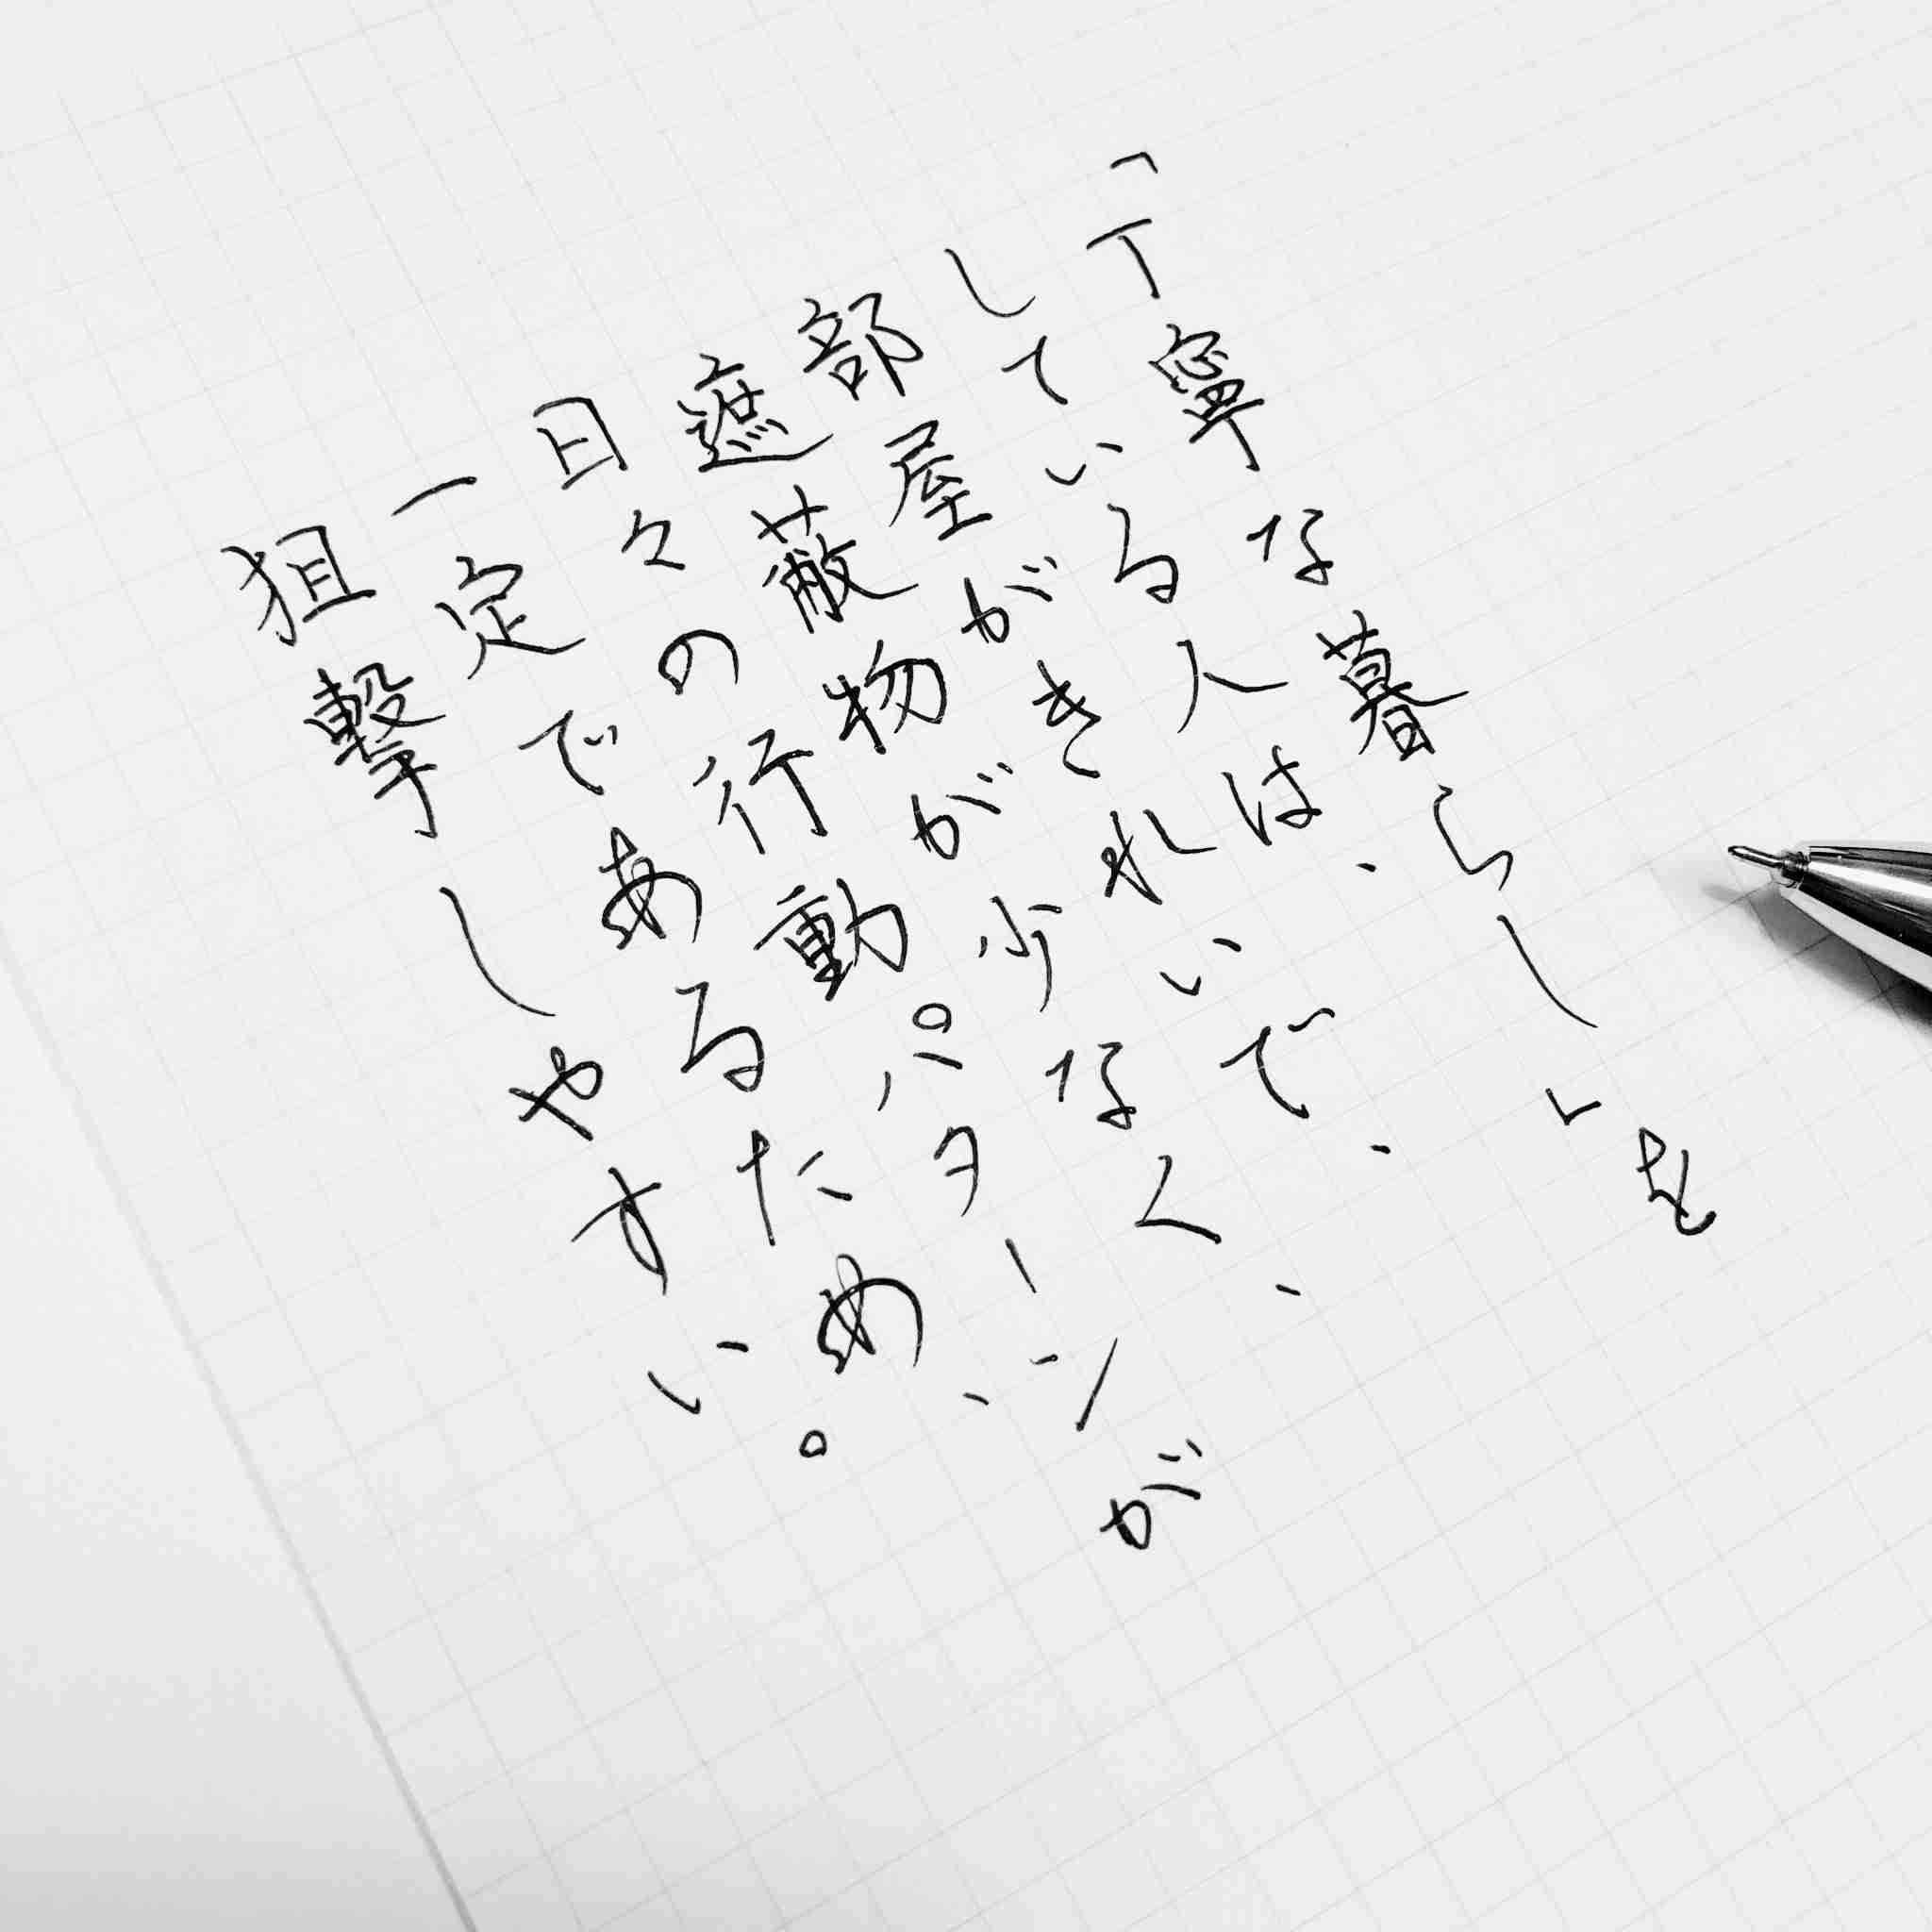 「丁寧な暮らし」を
している人は、
部屋がきれいで、
遮蔽物が少なく、
日々の行動パターンが
一定であるため、
狙撃しやすい。